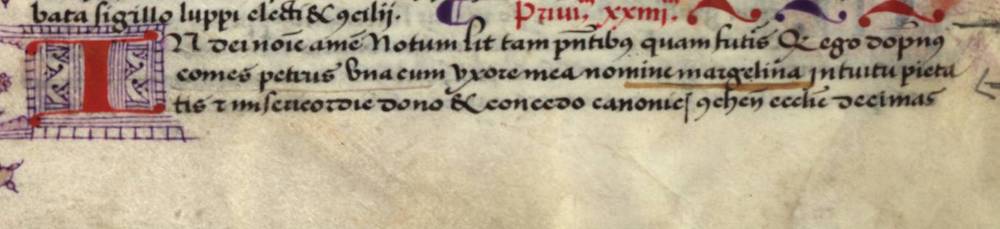 bata sigillo luppi electi & ꝯcilii. Priui. xxiiii.
IN dei noīe amē Notum sit tam pn̄tibꝰ quam futis̄ Q ego dopn̄ꝰ
comes petrus vna cum vxore mea nomine margelina intuitu pieta
tis ⁊ misericordie dono & concedo canonicꝭ ꝯchen̄ ecclīe decimas